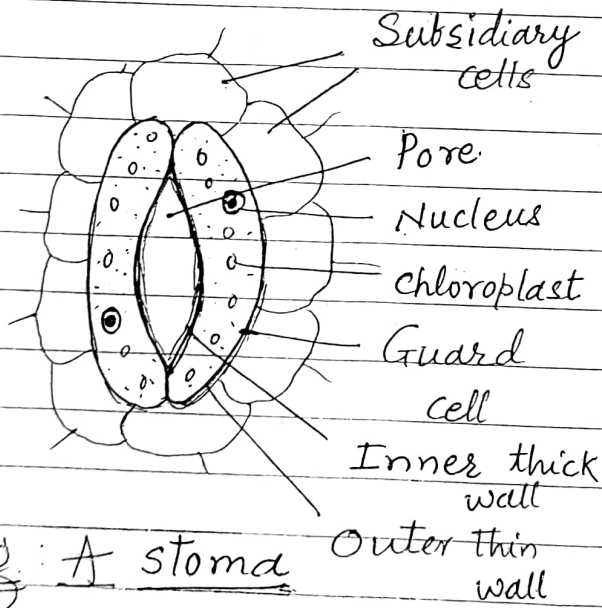 Subsidiary
cells
Pore
Nucleus
chloroplast
Guard
cell
Inner thick
wall
Outer thin
wall
: A stoma